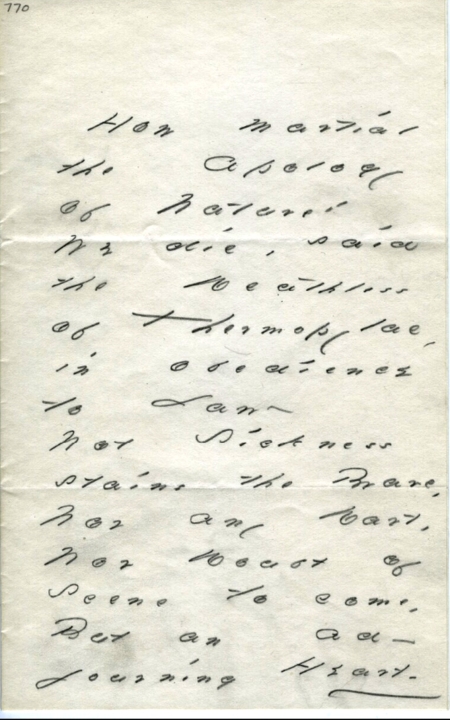 770
How martial
the Apology
of Nature!
We die, said
the Deathless
of Thermopylae,
in obedience
to Law—
Not Sickness
stains the Brave,
Nor any Dart,
Nor Doubt of
Scene to come,
But an ad—
journing Heart—